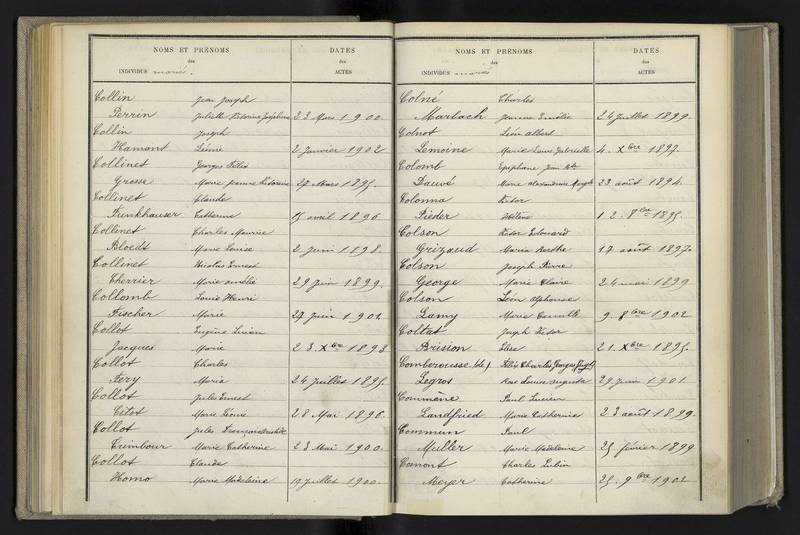 NOMS ET PRÉNOMS
des
INDIVIDUS mariés.
DATES
des
ACTES
Collin Jean Joseph
Perrin Juliette Victorine Joséphine 23 Mars 1900.
Collin Joseph
Hamant Léonie 2 Janvier 1902
Collinet Georges Félix
Grosse Marie Jeanne Victorine 27 Mars 1895.
Collinet Claude
Funkhauser Catherine avril 1896
Collinet Charles Maurice
Bloedt Marie Louise 2 Juin 1898.
Collinet Nicolas Ernest
Cherrier Marie Amélie 29 Juin 1899.
Collomb Louis Henri
Fischer Marie 27 Juin 1902
Collot Eugène Lucien
Jacques Marie 23. Xbre 1893
Collot Charles
Fery Maria 24 Juillet 1895.
Collot Jules Ernest
Citot Marie Léonie 28 Mai 1896.
Collot Jules François
Cuimbour Marie Catherine 23 Mai 1900.
Collot Claude
Homo Marie Madeleine 19 Juillet 1900.
NOMS ET PRÉNOMS
des
INDIVIDUS mariés
DATES
des
ACTES
Colné Charles
Marbach Jeanne Emélie 24 Juillet 1899.
Colnot Léon Albert
Lemoine Marie Louise Gabrielle 4. Xbre 1897.
Colomb Epiphane Jean Bte
Dauvé Marie Alexandrine 23 août 1894.
Colonna Victor
Pieder Hélène 12. 8bre 1895.
Colson Victor Edouard
Grizaud Maria Berthe 17 août 1897.
Colson Joseph Pierre
George Marie Claire 24 mai 1899
Colson Léon Alphonse
Lamy Marie Camille 9. 8bre 1902
Coltat Joseph Victor
Brision Elise 21. Xbre 1895.
Comberousse (de) Félix Charles Georges
Legros Rose Louise Augusta 29 Juin 1901
Commène Paul Lucien
Landfried Marie Catherine 23 août 1899.
Commun Paul
Muller Marie Madeleine 25 février 1899
Comont Charles Lubin
Meyer Catherine 25. 9bre 1902